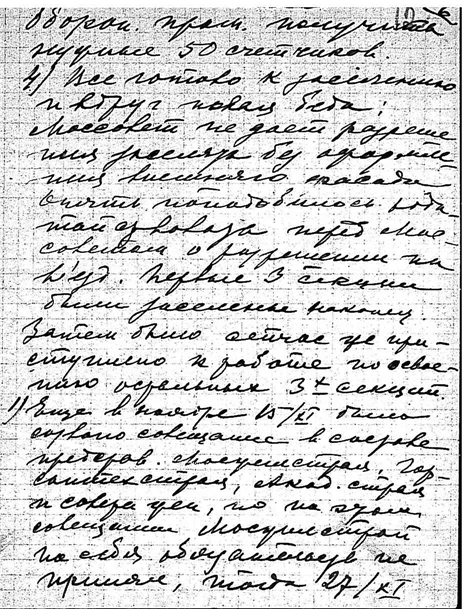 Оборон. пром. получить
нужные 50 счетчиков.
4) Все готово к заселению
и вдруг новая беда:
Моссовет не дает разреше
ния заселять без оформле
ния внешнего фасада
Опять понадобилось хода-
тайствовать перед Мос-
советом о разрешении на
в'езд. Первые 3 секции
были заселены наконец.
Затем было сейчас же при-
ступлено к работе по освое-
нию остальных 3х секций.
1) Еще в ноябре 15/XI было
созвано совещание в составе
Мосжилстроя, Гор-
сантехстроя, Акад. строя
и совета, но на этом
совещании Мосжилстрой
на себя обязательств не
принял, тогда 27/XI